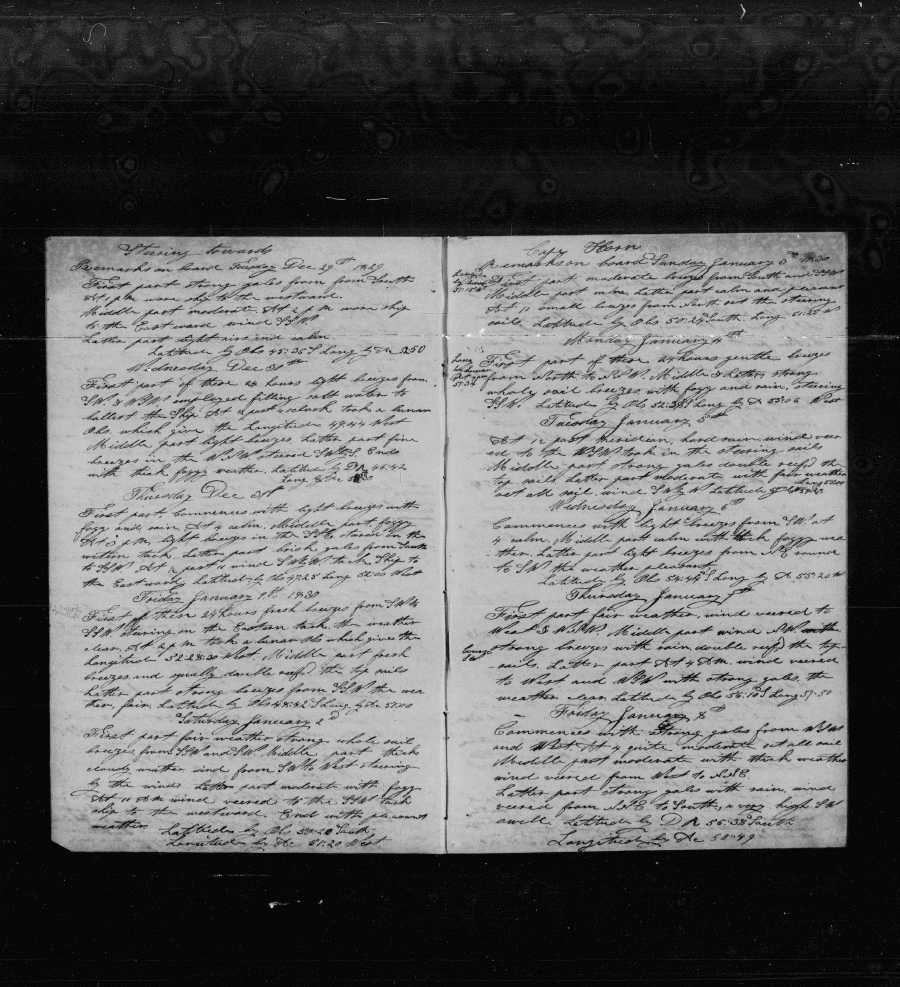 Steering towards
Remarks on board Tuesday Dec 29th 1829
First part strong gales from from South
At 1 pm wore ship to the westward.
Middle part moderate At 2 pm wore ship
to the Eastward wind SSW
Latter part light airs and calm.
Lattitude by Obs 45:35 S Long by Ac 52:50
Wednesday Dec 30th
First part of these 24 hours light breezes from
SW & WSW employed filling salt water to
ballast the Ship At 2 past 4 oclock took a lunar
Obs. which give the Longitude 49:44 West
Middle part light breezes Latter part fine
breezes in the WSW steered SWbS. Ends
with thick foggy weather. Latitude by DR 46:42
Long by Ac
Thursday Dec 31st
First part Commences with light breezes with
foggy and rain At 4 calm. Middle part foggy
At 3 pm, light breezes in the steered on the
western tack. Latter part brisk gales from South
to SSW. At past 11 wind SWbW tack Ship to
the Eastward Lattitude by Obs 47:25 Long 52:00 West
Friday January 1st 1830
First of these 24 hours fresh breezes from SW to
SSW steering on the Eastern tack. the weather
clear. At 4 pm took a lunar Obs which give the
Longitude 52:28:30 West. Middle part fresh
breezes and squally double reef'd the top sails
Latter part strong breezes from SSW the wea
ther, fair. Lattitude by Obs 48:42 S Long by Ac 51:00
Saturday January 2nd
First part fair weather strong whole sail
breezes from SSW and SW. Middle part thick
cloudy weather wind from SW to West steering
by the winds Latter part moderate with foggy
At 11 AM wind veered to the SSW tack
ship to the westward. Ends with pleasant
weather Lattitude by Obs 50:20 South
Longitude by Ac 51:20 West
Cape Horn
Remarks on board Sunday January 3rd 1830
First part moderate breezes from South and
Middle part calm Latter part calm and pleasant
At 11 small breezes from North set the steering
sails Lattitude by Obs 50:29 South Long
Monday January 4th
First part of these 24 hours gentle breezes
from North to NNW. Middle & Latter strong
whole sail breezes with fogg and rain, steering
SSW. Lattitude by Obs 52:35 S Long by Ac 53:06 West
Tuesday January 5th
At past meridian, hard rain wind veer
ed to the WSW took in the steering sails
Middle part strong gales double reef'd the
top sails Latter part moderate with fair weather
set all sail wind SWbW Lattitude
Long
Wednesday January 6th
Commences with light breezes from SW. at
4 calm. Middle part calm with thick foggy wea
ther. Latter part light breezes from round
to SW the weather pleasant
Lattitude by Obs 54:44 S Long by Ac 55:20 W
Thursday January 7th
First part fair weather, wind veered to
West & WSW. Middle part wind NW with
strong breezes with rain double reef'd the top
sails. Latter part At 4 AM. wind veered
to West and WSW with strong gales, the
weather clear Lattitude by Obs 56:10 S Long 57:50
Friday January 8th
Commences with strong gales from WSW
and West. At 4 quite moderate set all sail
Middle part moderate with thick weather
wind veered from West to NNE
Latter part strong gales with rain, wind
veered from NNE to South, a very high SW
swell Lattitude by DR 56:38 South
Longitude by Ac 58:49